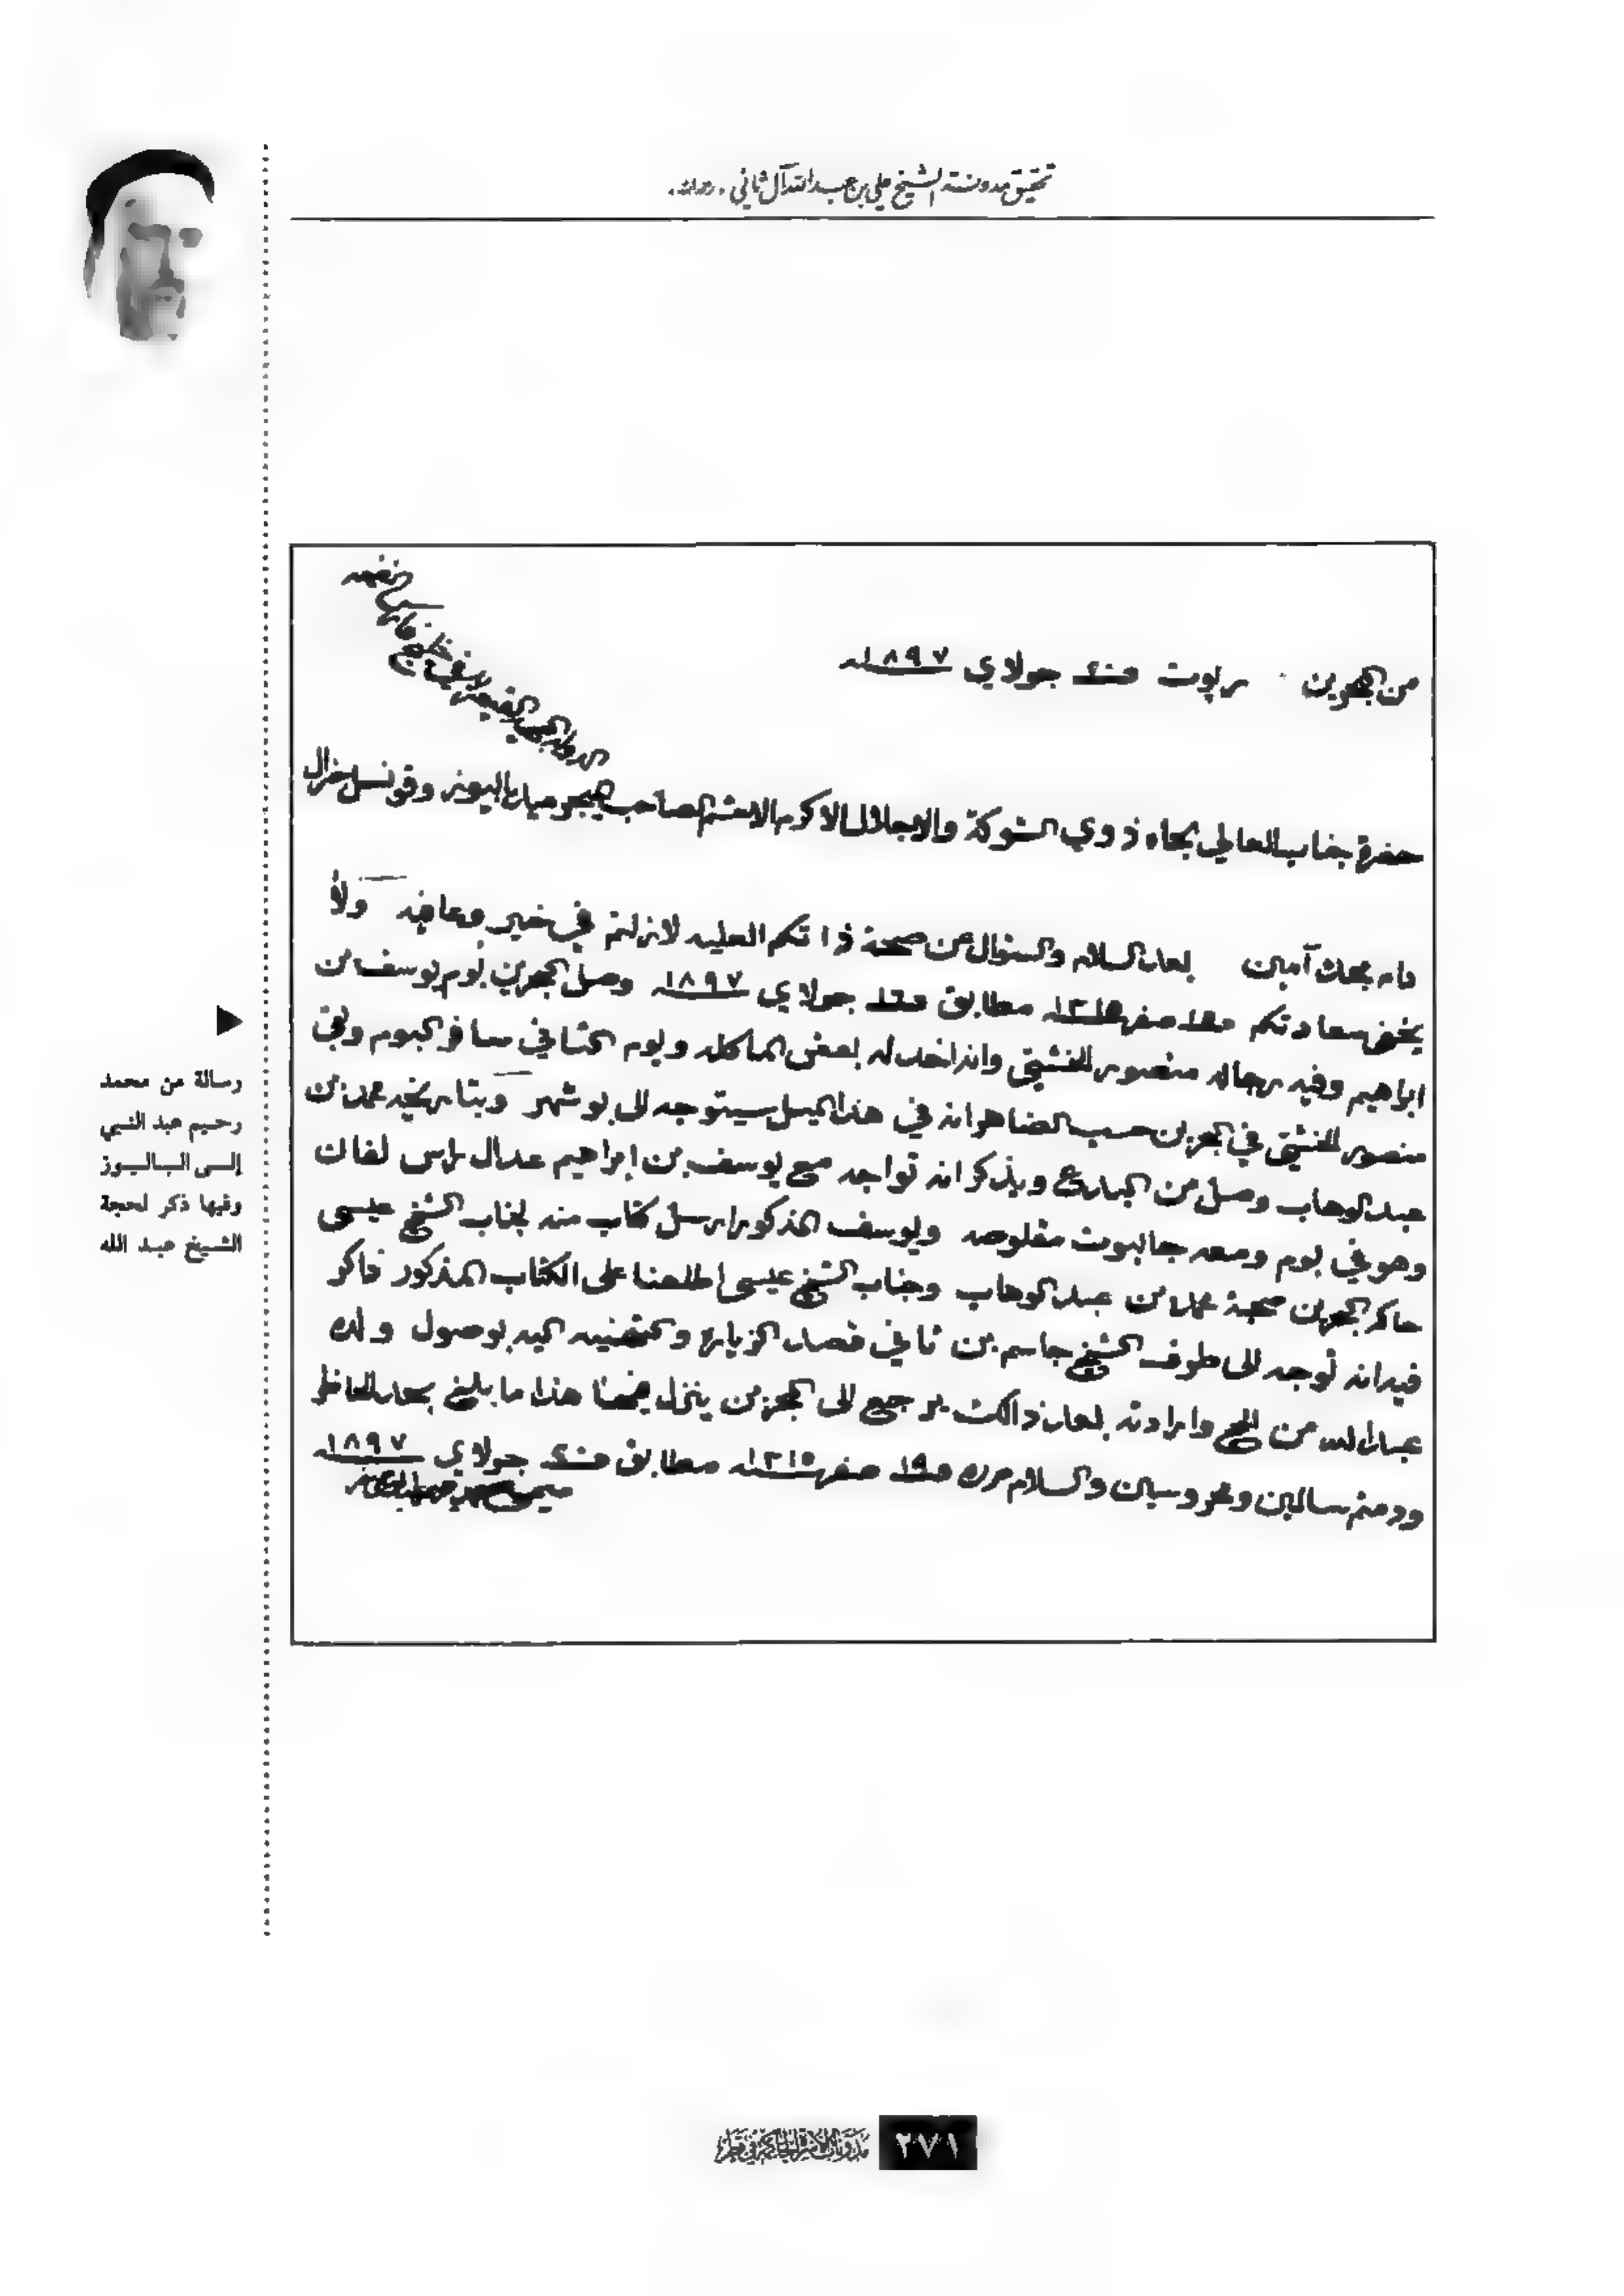 تحقيق مدونة الشيخ علي بن عبد الله آل ثاني . رحمه الله .
من البحرين رپوت جولاي ١٨٩٧
حضرة جناب العالي بجاه ذوي الشوكة والاجلال الاكرم الافخم الصاحب وقونسل جنرال
دام مجدك آمين بعد السلام والسئوال عن صحة ذاتكم العليه لازلتم في خير وعافيه ولا
يخفى سعادتكم صفر مطابق جولاي ١٨٩٧ وصل البحرين بوم يوسف بن
ابراهيم وفيه رجاله منصور الخنشيتي وانه اخذ له بعض الماكله ويوم الثاني سافر البوم وبقي
منصور الخنشيتي في البحرين حسب الضاهر انه في هذا الميل سيتوجه الى بو شهر وبتاريخه محمد بن
عبد الوهاب وصل من البدع ويذكر انه تواجه مع يوسف بن إبراهيم عدال راس لفان
وهو في بوم ومعه جالبوت مقلوصه ويوسف المذكور ارسل كتاب منه لجناب الشيخ عيسى
حاكم البحرين صحبة محمد بن عبد الوهاب وجناب الشيخ عيسى اطلعنا على الكتاب المذكور ذاكر
فيه انه توجه الى طرف الشيخ جاسم بن ثاني قصد الزياره والتهنيه اليه بوصول ولده
عبد الله من الحج وارادته بعد ذالك يرجع الى البحرين ينزل هذا ما بلغ بحد الخاطر
ودمتم سالمين ومحروسين والسلام حرر ١٩ صفر ١٣١٥ مطابق جولاي ١٨٩٧
رسالة من محمد
رحيم عبد النبي
إلى الباليوز
وفيها ذكر لحجة
الشيخ عبد الله
٢٧١